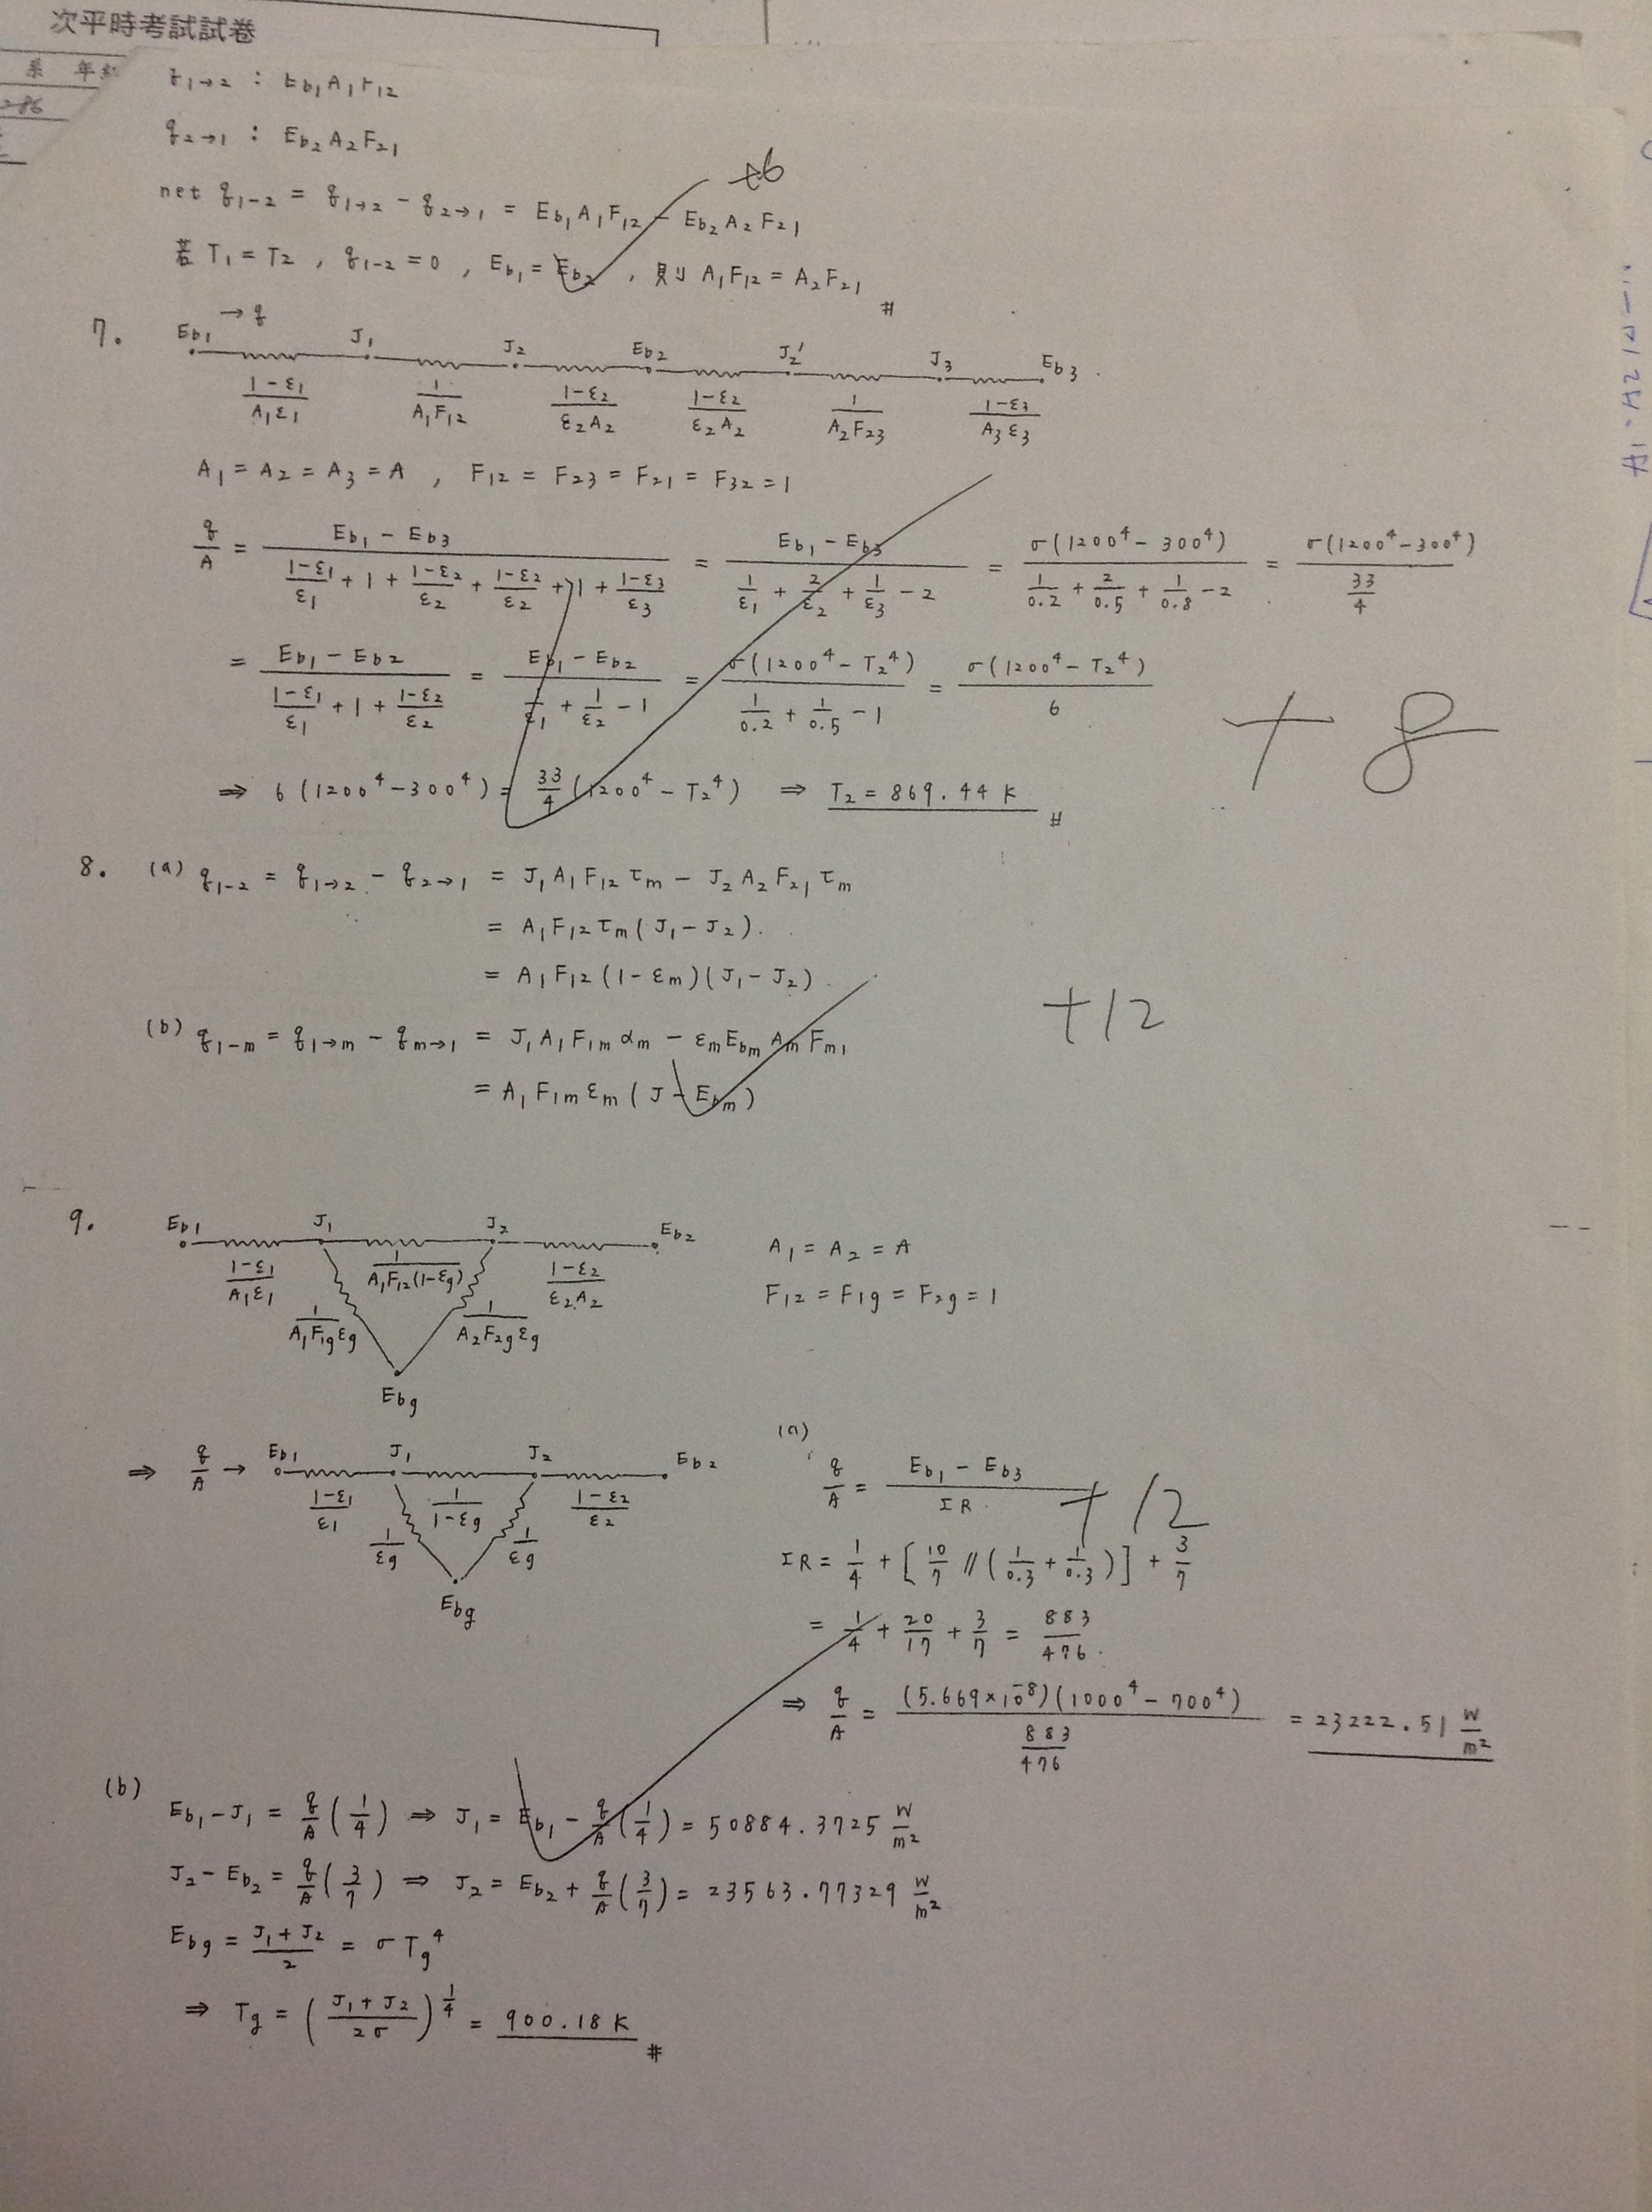 次平時考試試卷
系 年
286
q1→2 : Eb1 A1 F12
q2→1 : Eb2 A2 F21
+6
net q1-2 = q1→2 - q2→1 = Eb1 A1 F12 - Eb2 A2 F21
若 T1 = T2 , q1-2 = 0 , Eb1 = Eb2 , 則 A1F12 = A2F21 #
7. Eb1 → q J1 J2 Eb2 J2' J3 Eb3
(1-ε1)/(A1ε1) 1/(A1F12) (1-ε2)/(ε2A2) (1-ε2)/(ε2A2) 1/(A2F23) (1-ε3)/(A3ε3)
A1 = A2 = A3 = A , F12 = F23 = F21 = F32 = 1
q/A = (Eb1 - Eb3)/((1-ε1)/ε1 + 1 + (1-ε2)/ε2 + (1-ε2)/ε2 + 1 + (1-ε3)/ε3) = (Eb1 - Eb3)/(1/ε1 + 2/ε2 + 1/ε3 - 2) = σ(1200⁴ - 300⁴)/(1/0.2 + 2/0.5 + 1/0.8 - 2) = σ(1200⁴-300⁴)/(33/4)
= (Eb1 - Eb2)/((1-ε1)/ε1 + 1 + (1-ε2)/ε2) = (Eb1 - Eb2)/(1/ε1 + 1/ε2 - 1) = σ(1200⁴ - T2⁴)/(1/0.2 + 1/0.5 - 1) = σ(1200⁴ - T2⁴)/6
+8
⇒ 6 (1200⁴ - 300⁴) = 33/4 (1200⁴ - T2⁴) ⇒ T2 = 869.44 K #
8. (a) q1-2 = q1→2 - q2→1 = J1 A1 F12 τm - J2 A2 F21 τm
= A1 F12 τm ( J1 - J2 ).
= A1 F12 (1 - εm)( J1 - J2 )
+12
(b) q1-m = q1→m - qm→1 = J1 A1 F1m αm - εm Ebm Am Fm1
= A1 F1m εm ( J - Ebm )
9. Eb1 J1 J2 Eb2
A1 = A2 = A
(1-ε1)/(A1ε1) 1/(A1F12(1-εg)) (1-ε2)/(ε2A2)
F12 = F1g = F2g = 1
1/(A1F1gεg) 1/(A2F2gεg)
Ebg
⇒ q/A → Eb1 J1 J2 Eb2
(1-ε1)/ε1 1/(1-εg) (1-ε2)/ε2
1/εg 1/εg
Ebg
(a)
q/A = (Eb1 - Eb3)/ΣR
+12
ΣR = 1/4 + [10/7 // (1/0.3 + 1/0.3)] + 3/7
= 1/4 + 20/17 + 3/7 = 883/476
⇒ q/A = (5.669×10⁻⁸)(1000⁴ - 700⁴)/(883/476) = 23222.51 W/m²
(b)
Eb1 - J1 = q/A (1/4) ⇒ J1 = Eb1 - q/A (1/4) = 50884.3725 W/m²
J2 - Eb2 = q/A (3/7) ⇒ J2 = Eb2 + q/A (3/7) = 23563.77329 W/m²
Ebg = (J1 + J2)/2 = σTg⁴
⇒ Tg = ((J1 + J2)/(2σ))^(1/4) = 900.18 K #